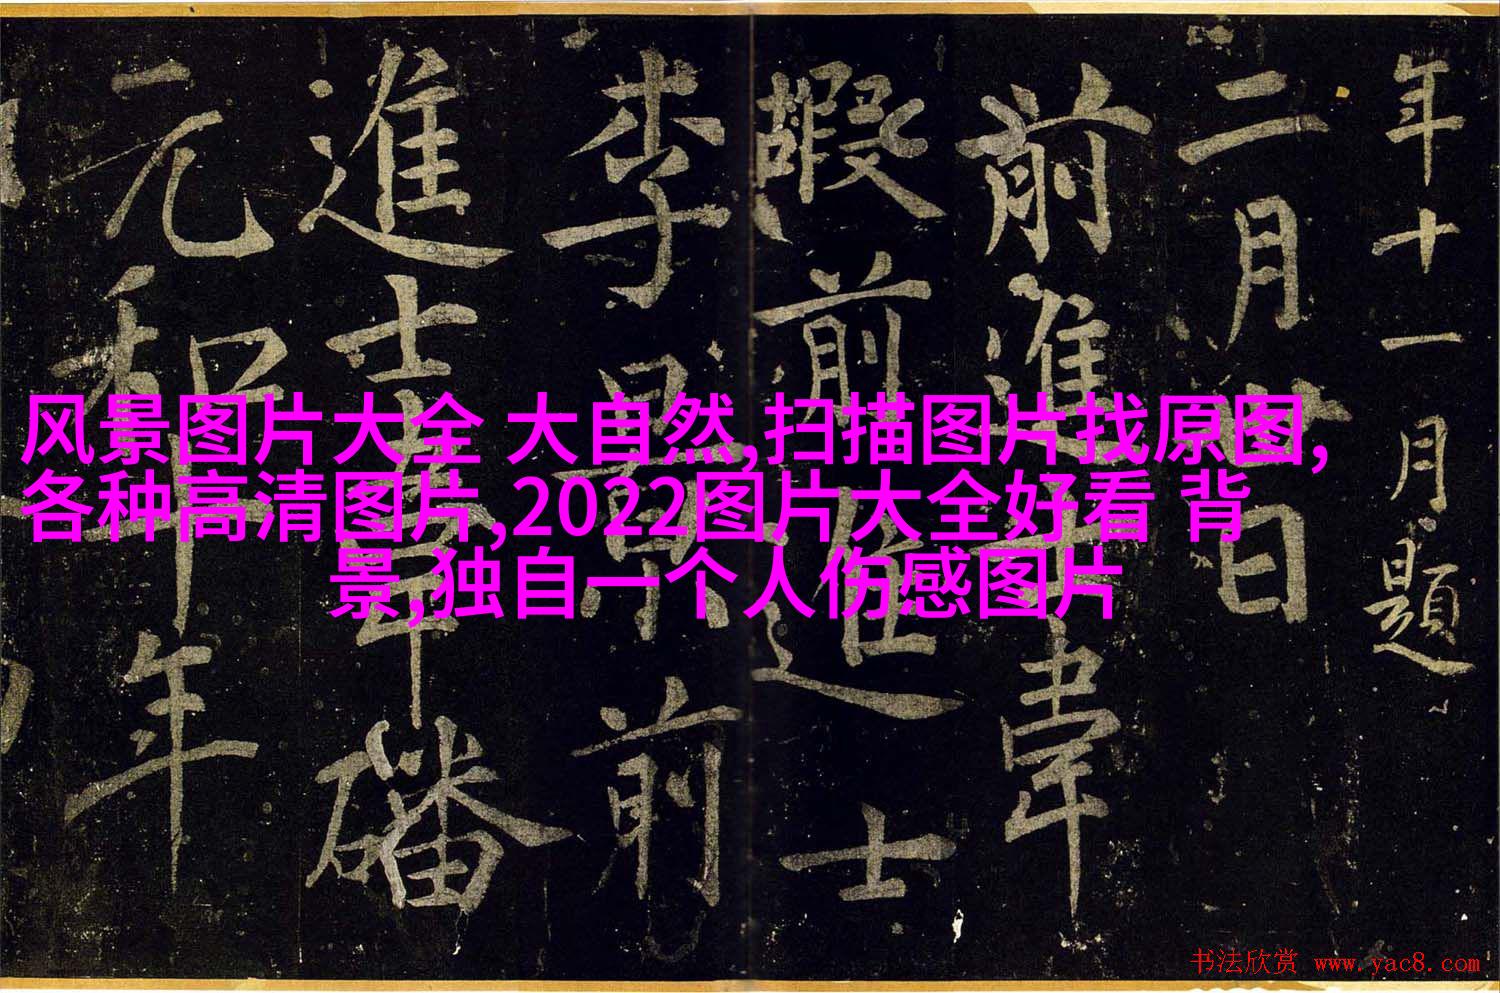 年十一月題
二月廿一日
前進士韋
蝦前進士
李景前
進士李璠
元和十年
风景图片大全 大自然,扫描图片找原图,
各种高清图片,2022图片大全好看 背
景,独自一个人伤感图片
书法欣赏 www.yac8.com